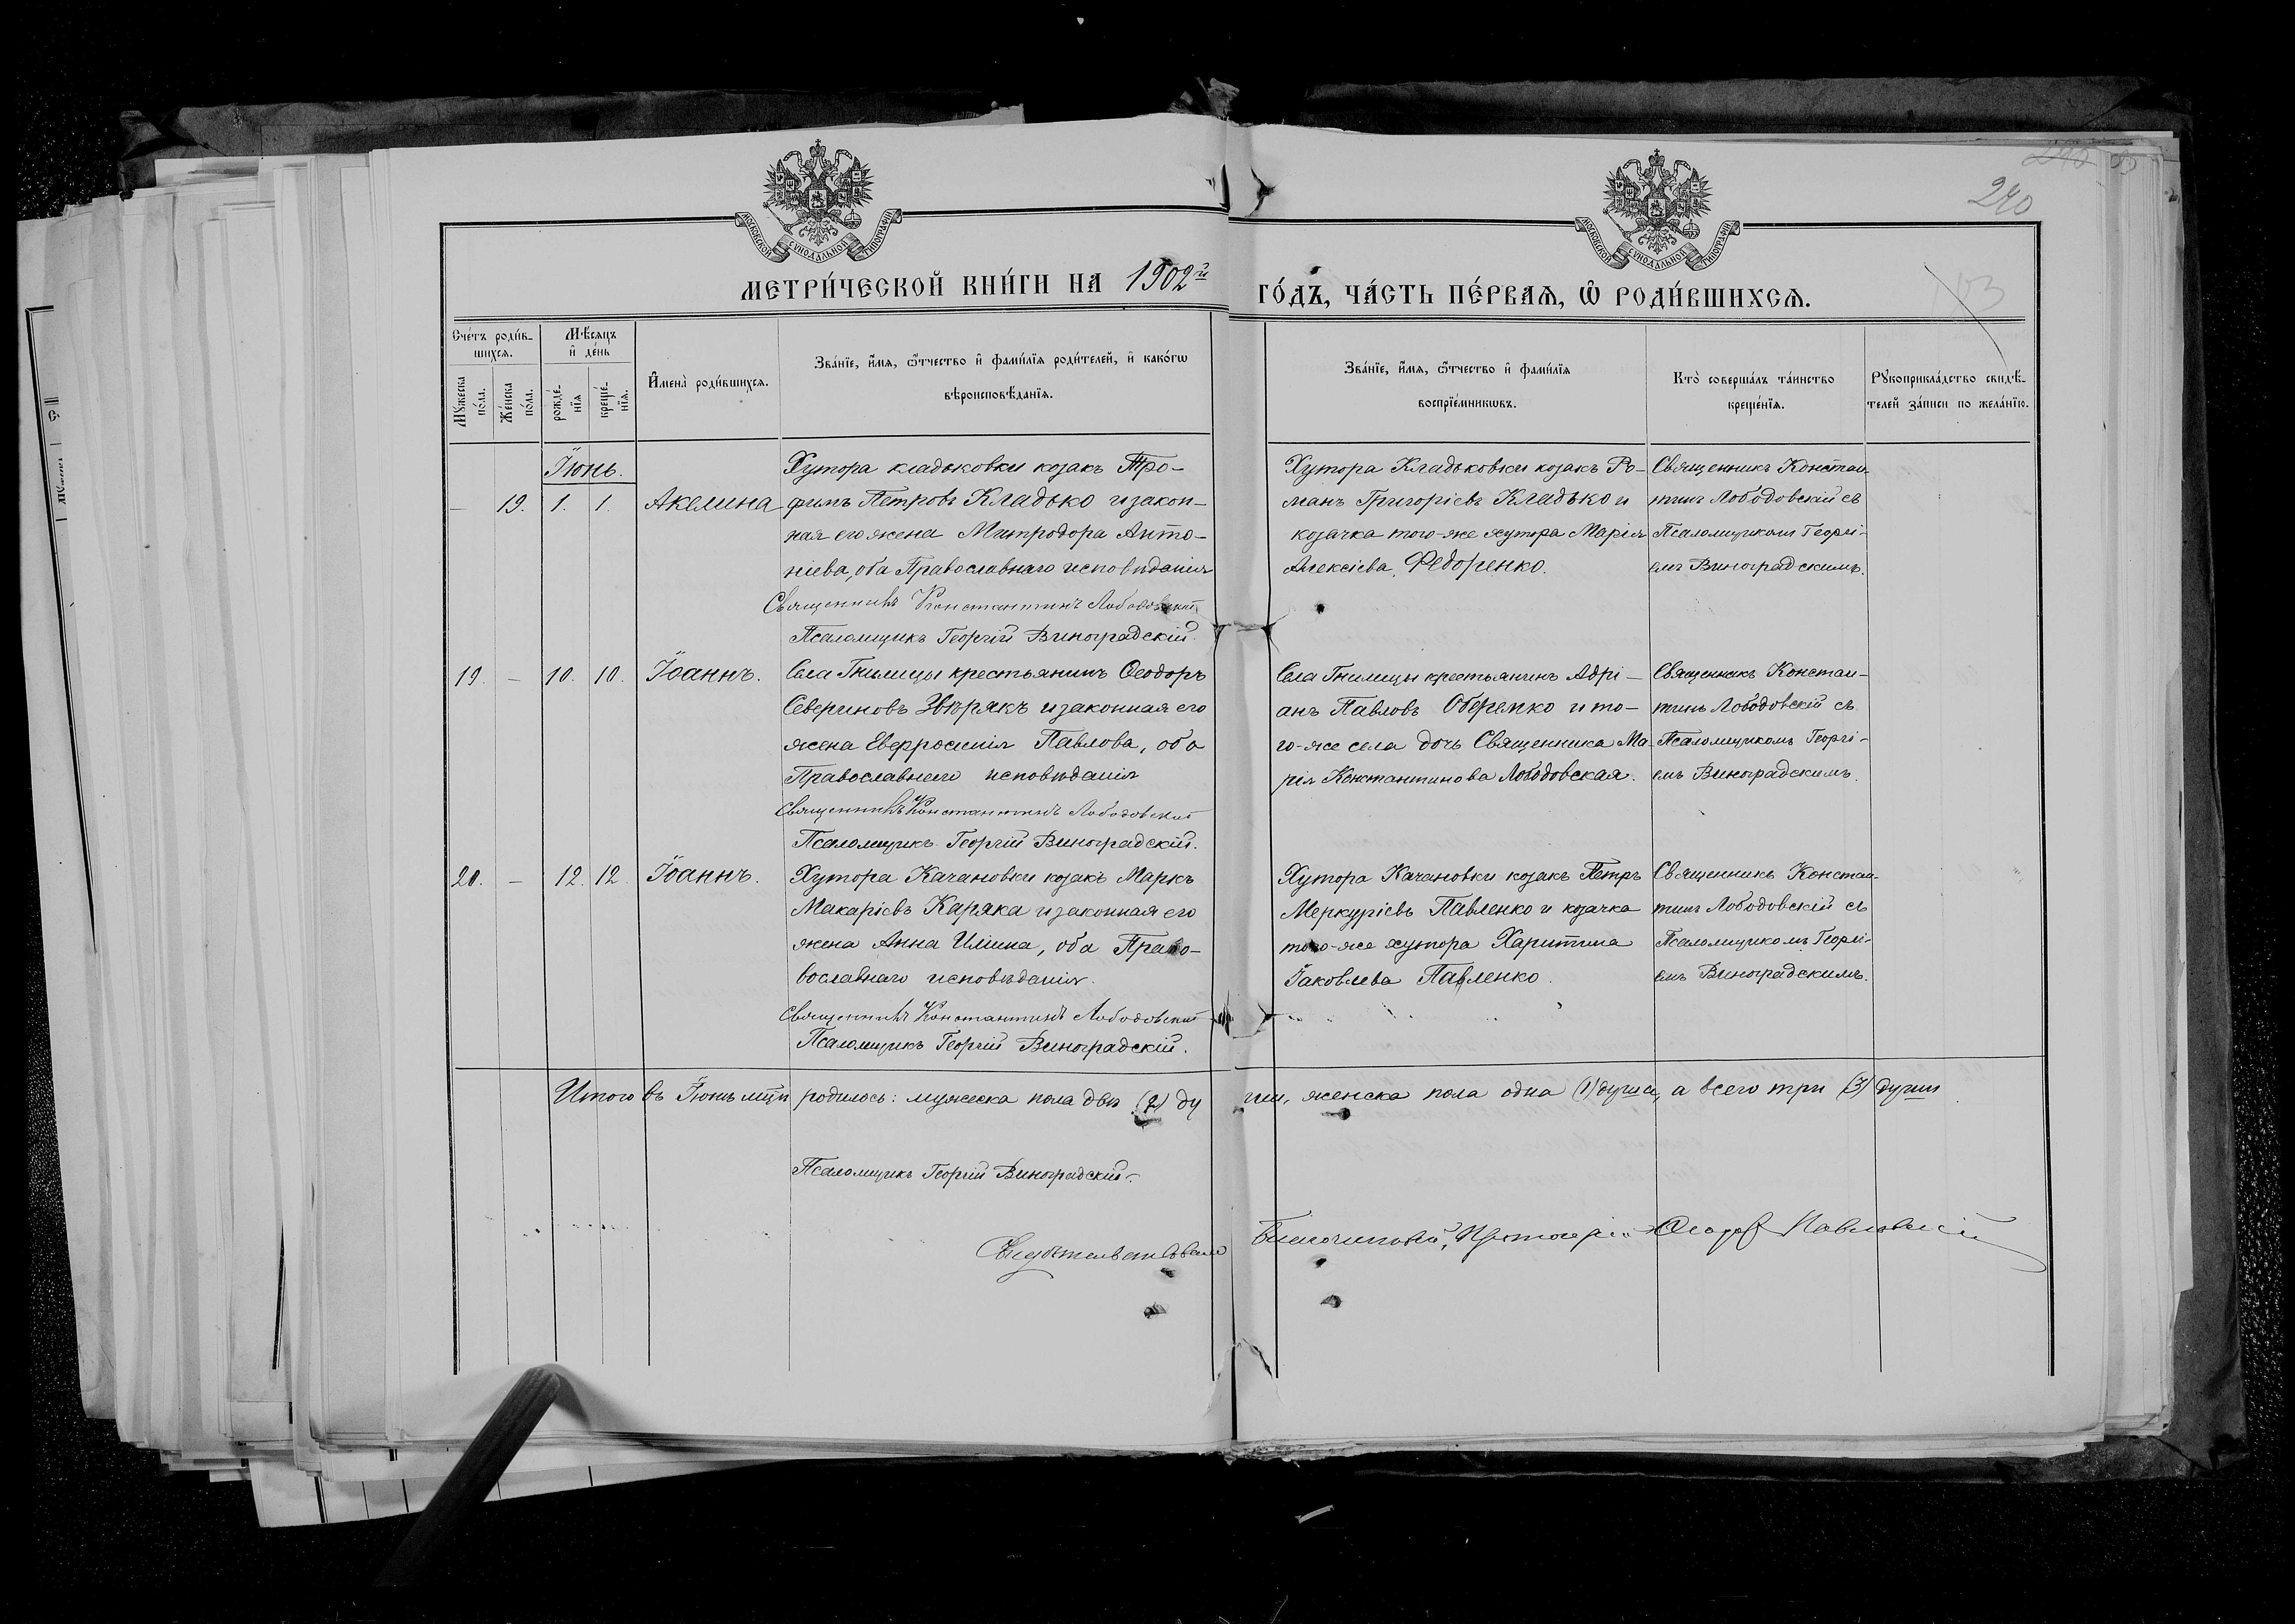 МОСКОВСКОЙ СѴНОДАЛЬНОЙ ТИПОГРАФІИ
МОСКОВСКОЙ СѴНОДАЛЬНОЙ ТИПОГРАФІИ
240
МЕТРИ́ЧЕСКОЙ КНИ́ГИ НА 1902й ГО́ДЪ, ЧА́СТЬ ПЕ́РВАѦ, Ѡ РОДИ́ВШИХСѦ.
Сче́тъ роди́в-
шихсѧ.
Мꙋ́жеска
по́ла.
Же́нска
по́ла.
Мѣ́сѧцъ
и҆ де́нь
рожде́-
нїѧ
креще́-
нїѧ.
И҆мена̀ роди́вшихсѧ.
Зва́нїе, и҆́мѧ, ѻ҆́тчество и҆ фами́лїѧ роди́телей, и҆ како́гѡ
вѣроисповѣ́данїѧ.
Зва́нїе, и҆́мѧ, ѻ҆́тчество и҆ фами́лїѧ
воспрїе́мникѡвъ.
Кто̀ соверша́лъ та́инство
креще́нїѧ.
Рꙋкоприкла́дство свидѣ́-
телей за́писи по жела́нїю.
Іюнь.
— 19. 1. 1. Акелина
Хутора кладьковки козакъ Тро-
фимъ Петровъ Кладько и закон-
ная его жена Митродора Анто-
ніева, оба Православнаго исповѣданія
Священникъ Константинъ Лободовскій
Псаломщикъ Георгій Виноградскій.
Хутора Кладьковки козакъ Ро-
манъ Григоріевъ Кладько и
козачка того-же хутора Марія
Алексіева Федоренко.
Священникъ Констан-
тинъ Лободовскій съ
Псаломщикомъ Георгі-
емъ Виноградскимъ.
19. — 10. 10. Іоаннъ.
Села Гнилицы крестьянинъ Ѳеодоръ
Севериновъ Звѣрякъ и законная его
жена Евфросинія Павлова, оба
Православнаго исповѣданія
Священникъ Константинъ Лободовскій
Псаломщикъ Георгій Виноградскій.
Села Гнилицы крестьянинъ Адрі-
анъ Павловъ Оберемко и то-
го-же села дочь Священника Ма-
рія Константинова Лободовская.
Священникъ Констан-
тинъ Лободовскій съ
Псаломщикомъ Георгі-
емъ Виноградскимъ.
20. — 12. 12. Іоаннъ.
Хутора Качановки козакъ Маркъ
Макаріевъ Каряка и законная его
жена Анна Иліина, оба Право-
вославнаго исповѣданія.
Священникъ Константинъ Лободовскій
Псаломщикъ Георгій Виноградскій.
Хутора Качановки козакъ Петръ
Меркуріевъ Павленко и козачка
того-же хутора Харитина
Іаковлева Павленко.
Священникъ Констан-
тинъ Лободовскій съ
Псаломщикомъ Георгі-
емъ Виноградскимъ.
Итого въ Іюнь мцѣ родилось: мужеска пола двѣ (2) ду ши, женска пола одна (1) душа, а всего три (3) души
Псаломщикъ Георгій Виноградскій.
Свидѣтельствовалъ Благочинный, Протоіерей Ѳеодоръ Павловскій